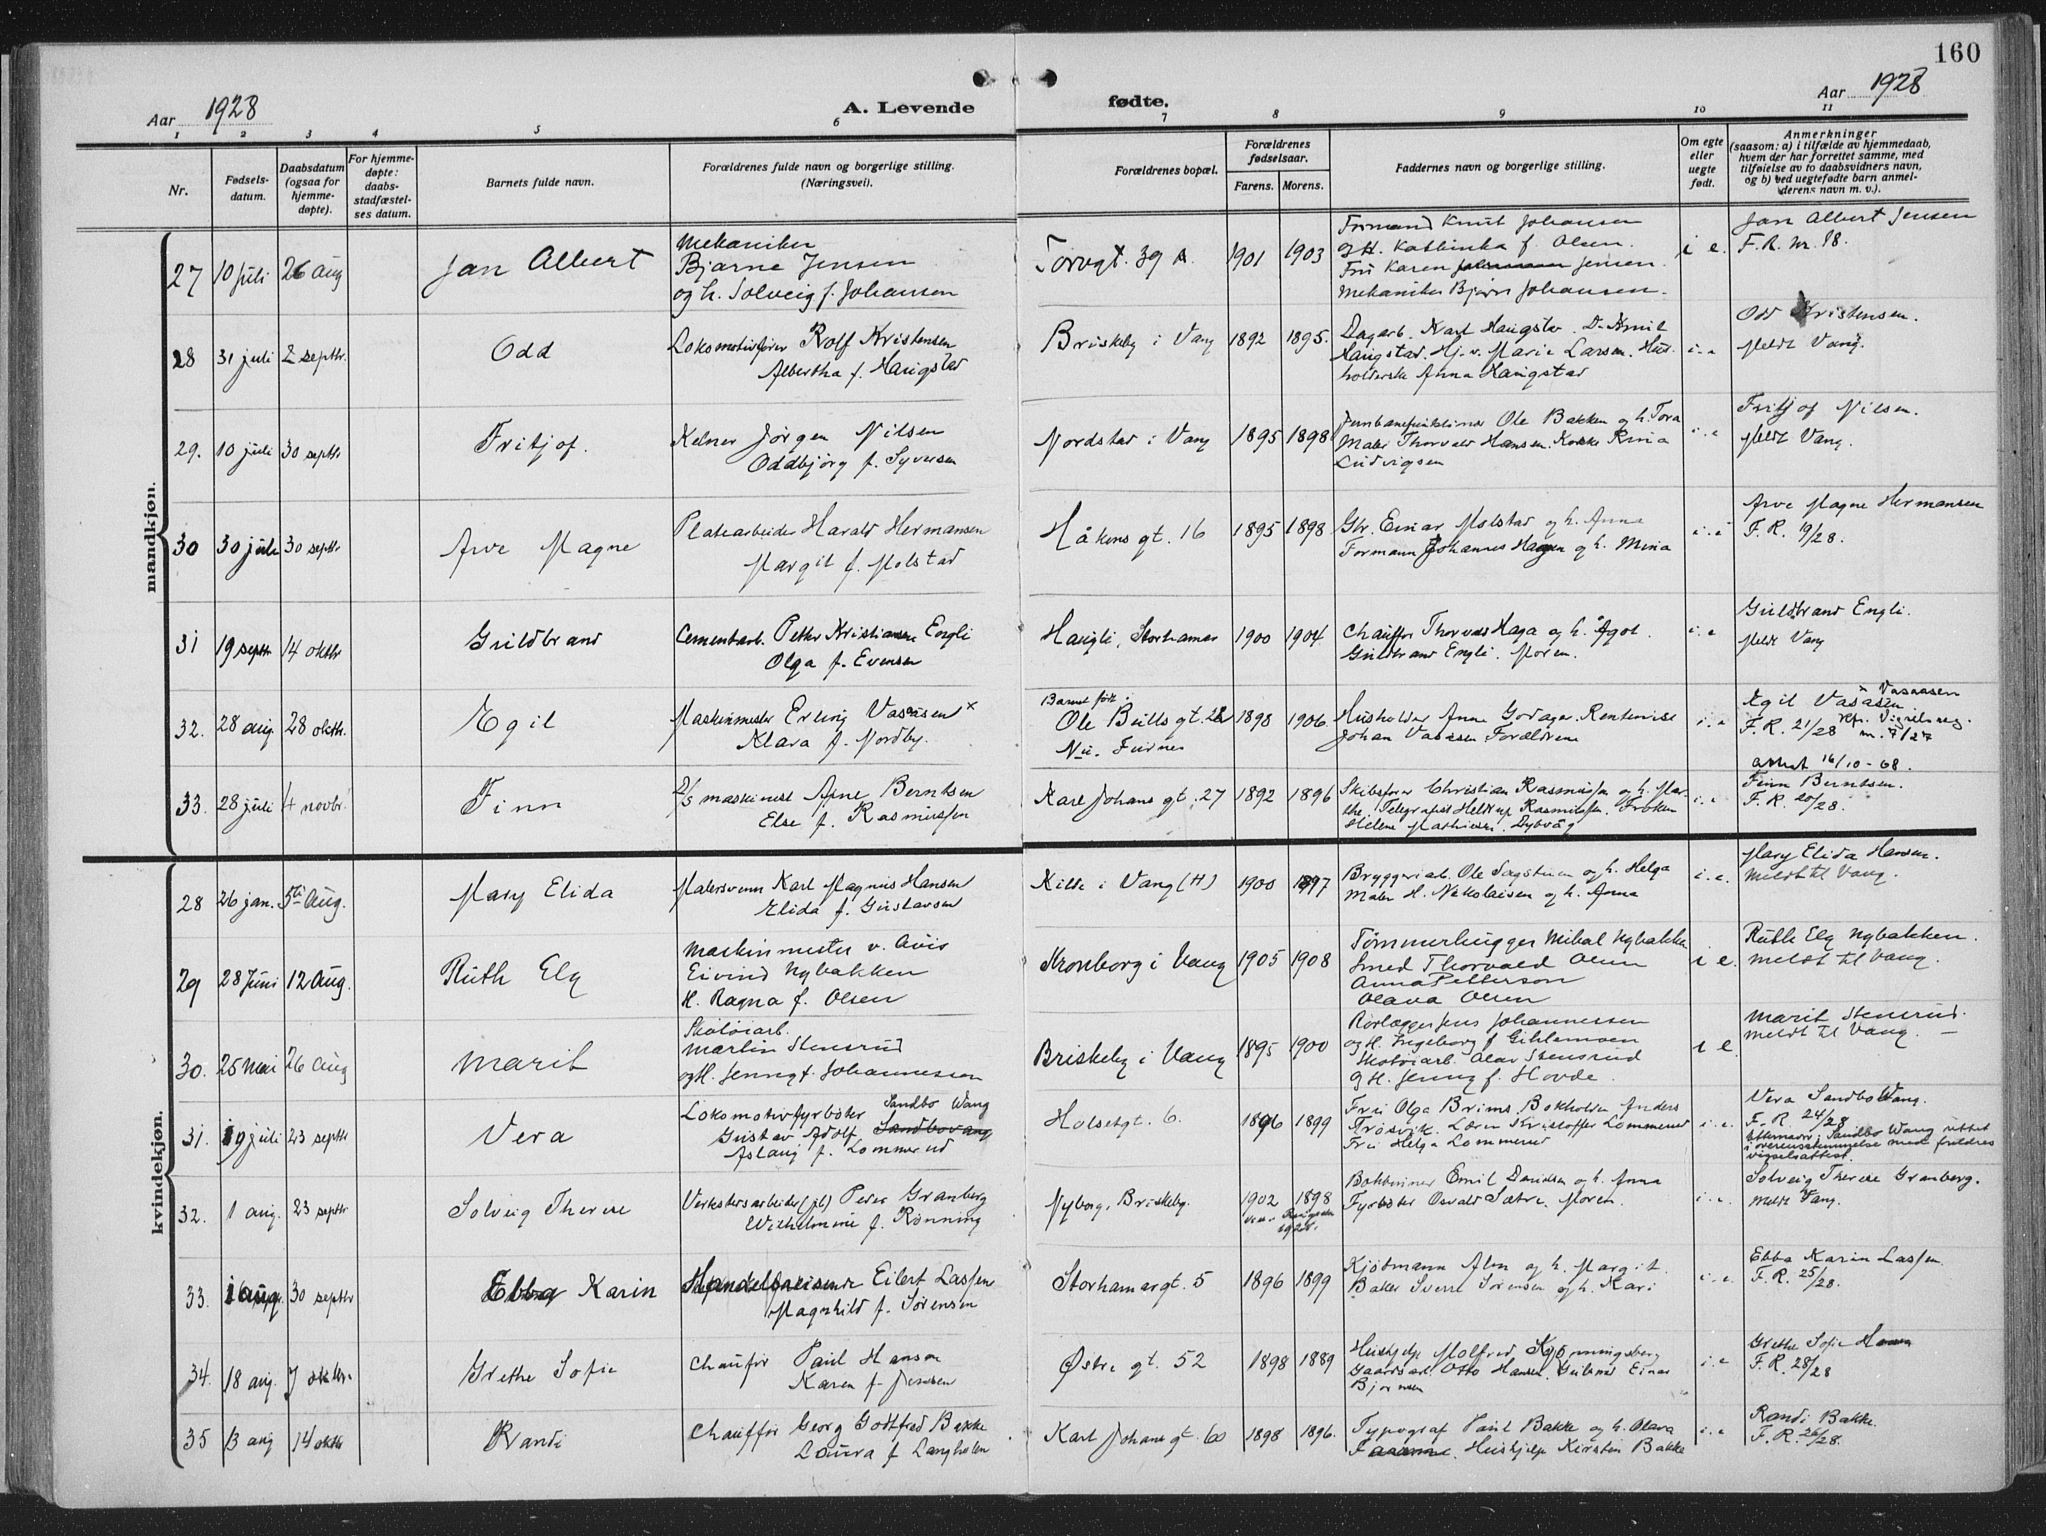 160
Aar 1928
A. Levende fødte.
Aar 1928
1 2 3 4 5 6 7 8 9 10 11
Nr.
Fødsels-
datum.
Daabsdatum
(ogsaa for
hjemme-
døpte).
For hjemme-
døpte:
daabs-
stadfæstel-
ses datum.
Barnets fulde navn.
Forældrenes fulde navn og borgerlige stilling.
(Næringsvei).
Forældrenes bopæl.
Forældrenes
fødselsaar.
Farens. Morens.
Faddernes navn og borgerlige stilling.
Om egte
eller
uegte
født.
Anmerkninger
(saasom: a) i tilfælde av hjemmedaab,
hvem der har forrettet samme, med
tilføielse av to daabsvidners navn,
og b) ved uegtefødte barn anmel-
derens navn m. v.).
mandkjøn.
27 10 juli 26 aug
Jan Albert
Mekaniker
Bjarne Jensen
og h. Solveig f. Johansen
Torvgt. 39 A. 1901 1903
Formand Knut Johansen
og H. Kathinka f. Olsen.
Fru Karen Jensen.
Mekaniker Bjørn Johansen.
i e.
Jan Albert Jensen
F. R. nr. 18.
28 31 juli 2 septbr.
Odd
Lokomotivfører Rolf Kristensen
Albertha f. Haugstad
Briskeby i Vang 1892 1895.
Dagarb. Karl Haugstad. D. Emil
Haugstad. Hj.v. Marie Larsen. Hus-
holderske Anna Haugstad
i. e
Odd Kristensen.
Meldt Vang.
29. 10 juli 30 septbr
Fritjof.
Kelner Jørgen Nilsen
Oddbjørg f. Syversen
Nordstad i Vang 1895 1898
Jernbanefunktionær Ole Bakken og h. Tora
Maler Thorvald Hansen. Kokke Rina
Ludvigsen
i. e
Fritjof Nilsen.
Meldt Vang.
30 30 juli 30 septbr
Arve Magne
Platearbeider Harald Hermansen
Margit f. Molstad
Håkons gt. 16 1895 1898
Gbr. Einar Molstad og h. Anna
Formann Johannes Hagen og h. Mina
i. e
Arve Magne Hermansen
F. R. 19/28.
31 19 septbr 14 oktbr
Guldbrand
Cementarb. Petter Kristiansen Engli
Olga f. Evensen
Haugli, Storhamar 1900 1904.
Chauffør Thorvald Haga og h. Ågot.
Guldbrand Engli. Moren.
i. e
Guldbrand Engli.
Meldt Vang
32. 28 aug. 28 oktbr.
Egil
Maskinmester Erling Vasaasen x
Klara f. Nordby.
Barnet født i
Ole Bulls gt. 28
Nu. Furnes
1898 1906.
Husholder Anna Godager. Rentenist
Johan Vasaasen. Forældrene
i. e
x Vasaasen
Egil Vasåsen
F. R. 21/28 Kfr. Vigselsreg.
nr. 7/27
attest 16/10-68.
33. 28 juli 4 novbr.
Finn
D/S maskinist Arne Berntsen
Else f. Rasmussen
Karl Johans gt. 27 1892 1896
Skibsfører Christian Rasmussen og h. Mar-
the. Telegrafist Rasmussen. Frøken
Helene Mathiesen. Dybvåg
i. e
Finn Berntsen.
F. R. 20/28.
kvindekjøn.
28 26 jan. 5te Aug.
Mary Elida
Malersvenn Karl Magnus Hansen
Elida f. Gustavsen
Kilde i Vang (H) 1900 1897
Bryggeriarb. Ole Sagstuen og h. Helga
Maler H. Nikolaisen og h. Anna
i. e.
Mary Elida Hansen.
Meldt til Vang.
29 28 Juni 12 Aug.
Ruth Ely
Maskinmester v. avis
Eivind Nybakken
H. Ragna f. Olsen
Kronborg i Vang 1905 1908
Tømmerhugger Mikal Nybakken
Smed Thorvald Olsen
Anna Petterson
Olava Olsen
i e.
Ruth Ely Nybakken.
Meldt til Vang.
30. 25 Mai 26 Aug
Marit
Skotøiarb.
Martin Stensrud
og H. Jenny f. Johannessen
Briskeby i Vang 1895 1900
Rørlægger Jens Johannessen
og H. Ingeborg f. Gihlemoen
Skotøiarb. Olav Stensrud
og H. Jenny f. Hovde.
i e.
Marit Stensrud.
Meldt til Vang. —
31. 19 juli 23 septbr
Vera
Lokomotivfyrbøter Sandbo Wang
Gustav Adolf Sandbovang
Aslaug f. Lommerud
Holsetgt. 6. 1896 1899
Fru Olga Brims. Bokholder Anders
Frøsvik. Lærer Kristoffer Lommerud
Fru Helga Lommerud
i. e.
Vera Sandbo Wang.
F. R. 24/28
Etternavn Sandbo Wang rettet
i overensstemmelse med foreldres
vigselsattest.
32. 1 aug. 23 septbr
Solveig Therese
Verkstedsarbeider (jb) Peder Granberg
Wilhelmine f. Rønning
Nyborg, Briskeby. 1902 1898
Viet Ringsaker
1928.
Bokbinder Emil Davidsen og h. Anna
Fyrbøter Osvald Sætre. Moren
i. e.
Solveig Therese Granberg.
Meldt Vang.
33. 16 aug. 30 septbr
Ebba Karin
Handelsreisende Eilert Lassen
Magnhild f. Sørensen
Storhamargt. 5 1896 1899
Kjøbmann Alm og h. Margit.
Baker Sverre Sørensen og h. Kari
i. e.
Ebba Karin Lassen
F. R. 25/28.
34. 18 aug. 7 oktbr.
Grethe Sofie
Chauffør Paul Hansen
Karen f. Jensen
Østre gt. 52 1898 1889
Hushjelp Molfrid Kjønningsberg
Gaardsarb. Otto Hansen. Einar
Bjørnsen
i. e
Grethe Sofie Hansen
F. R. 28/28
35 13 aug 14 oktbr
Randi
Chauffør Georg Godtfred Bakke
Laura f. Langholen
Karl Johans gt. 60 1898 1896.
Typograf Paul Bakke og h. Olava
Hushjelp Kirsten Bakke
i. e
Randi Bakke.
F. R. 26/28.